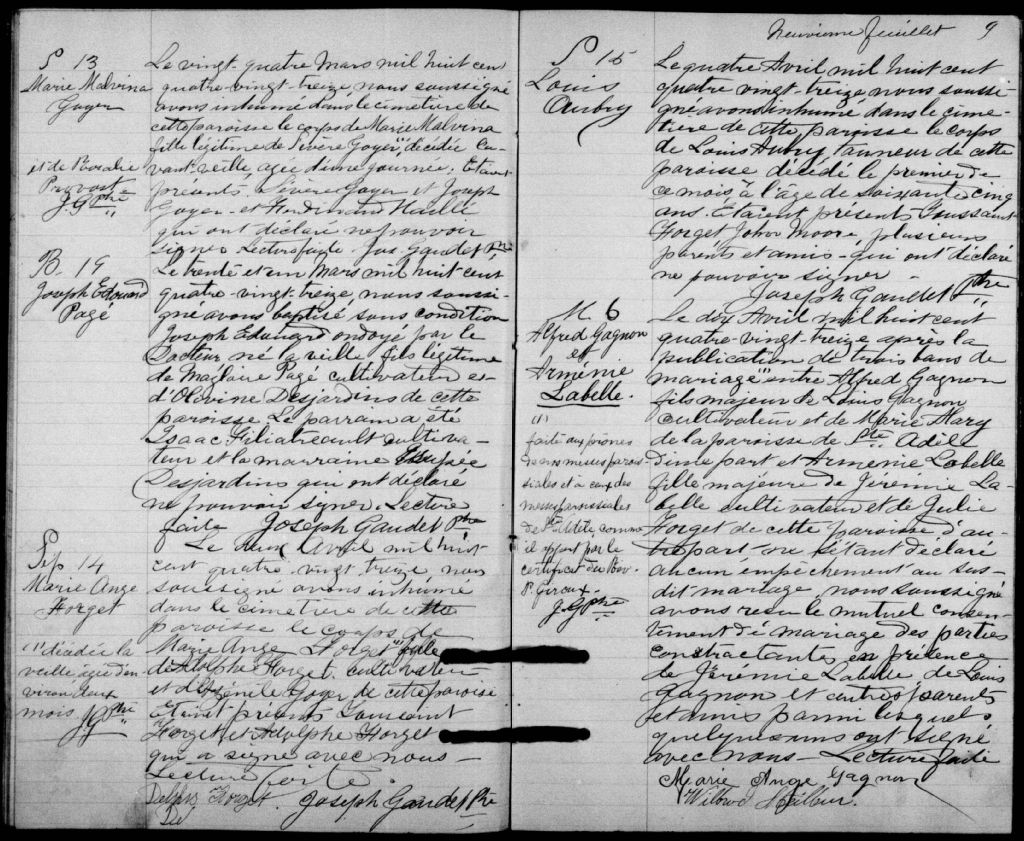 S 13
Marie Malvina
Goyer
et de Rosalie
Provost
J. G Ptre
Le vingt-quatre Mars mil huit cen
quatre-vingt-treize nous soussigné
avons inhumé dans le cimetière de
cette paroisse le corps de Marie Malvina
fille légitime de Sévère Goyer, décédée
vant-veille agée d'une journée. Etaient
présents Sévère Goyer et Joseph
Goyer et Ferdinand
qui ont déclaré ne pouvoir
signer Lecture faite Jos. Gaudet Ptre
B. 19
Joseph Edouard
Pagé
Le trente et un Mars mil huit cent
quatre-vingt-treize, nous soussi-
gné avons baptisé sous condition
Joseph Edouard ondoyé par le
Docteur né la veille fils légitime
de Magloire Pagé cultivateur et
d'Olivine Desjardins de cette
paroisse. Le parrain a été
Isaac Filiatreault cultiva-
teur et la marraine
Desjardins qui ont déclaré
ne pouvoir signer. Lecture
faite Joseph Gaudet Ptre
Sép 14
Marie Ange
Forget
(1) décédée la
veille agée d'en
viron deux
mois. JG Ptre
Le deux Avril mil huit
cent quatre-vingt-treize, nous
soussigné avons inhumé
dans le cimetière de cette
paroisse le corps de
Marie Ange Forget fille
d'Adolphe Forget cultivateur
et d' Goyer de cette paroisse
Etaient présents
Forget et Adolphe Forget
qui a signé avec nous -
Lecture faite.
Forget. Joseph Gaudet Ptre
Neuvième feuillet 9
S 15
Louis
Aubry
Le quatre Avril mil huit cent
quatre vingt-treize nous soussi-
gné avons inhumé dans le cime-
tière de cette paroisse le corps
de Louis Aubry Tanneur de cette
paroisse décédé le premier de
ce mois, à l'âge de soixante cinq
ans. Etaient présents Toussaint
Forget John Moore, plusieurs
parents et amis qui ont déclaré
ne pouvoir signer -
Joseph Gaudet Ptre
M 6
Alfred Gagnon
et
Arménie
Labelle.
(1)
faite aux prônes
de nos messes parois-
siales et à ceux des
messes paroissiales
de Ste Adèle, comme
il appert par le
certificat du Rev.
P. Giroux.
J. G Ptre
Le dix Avril mil huit cent
quatre-vingt-treize après la
publication de trois bans de
mariage entre Alfred Gagnon
fils majeur de Louis Gagnon
cultivateur et de Marie Mary
de la paroisse de Ste Adèle
d'une part et Arménie Labelle
fille majeure de Jérémie La-
belle cultivateur et de Julie
Forget de cette paroisse d'au-
tre part ne s'étant déclaré
aucun empêchement au sus-
dit mariage, nous soussigné
avons reçu le mutuel consen-
tement de mariage des parties
contractantes en présence
de Jérémie Labelle de Louis
Gagnon et autres parents
et amis parmi lesquels
quelques uns ont signé
avec nous - Lecture faite
Marie Ange Gagnon